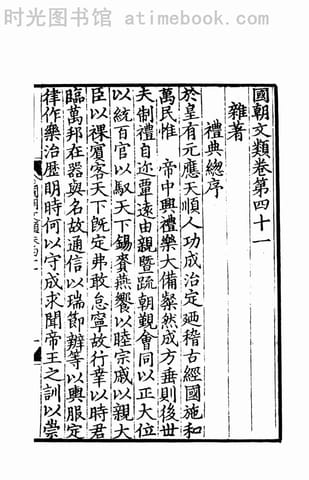 时光图书馆 atimebook.com
國朝文類卷第四十一
雜著
禮典總序
於皇有元應天順人功成治定廼稽古經國施和
萬民惟 帝中興禮樂大備粲然成方垂則後世
夫制禮自迩覃遠由親曁疏朝覲會同以正大位
以統百官以馭天下錫賚燕饗以睦宗戚以親大
臣以祼賓客天下旣定弗敢怠寧故行幸以時君
臨萬邦在器與名故通信以瑞節辨等以輿服定
律作樂治曆明時何以守成求聞帝王之訓以崇